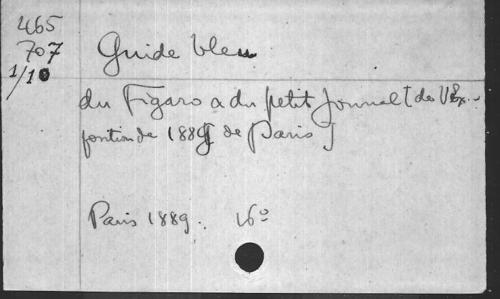 465
707
1/10
Guide bleu
du Figaro & du petit Journal [de l'Ex-
position de 1889 de Paris]
Paris 1889. 16°